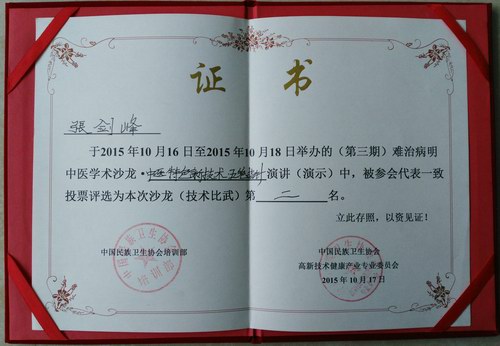 证 书
張剑峰
于2015年10月16日至2015年10月18日举办的（第三期）难治病明
中医学术沙龙·中医特色新技术演讲（演示）中，被参会代表一致
投票评选为本次沙龙（技术比武）第二名。
立此存照，以资见证！
中国民族卫生协会培训部
中国民族卫生协会
高新技术健康产业专业委员会
2015年10月17日